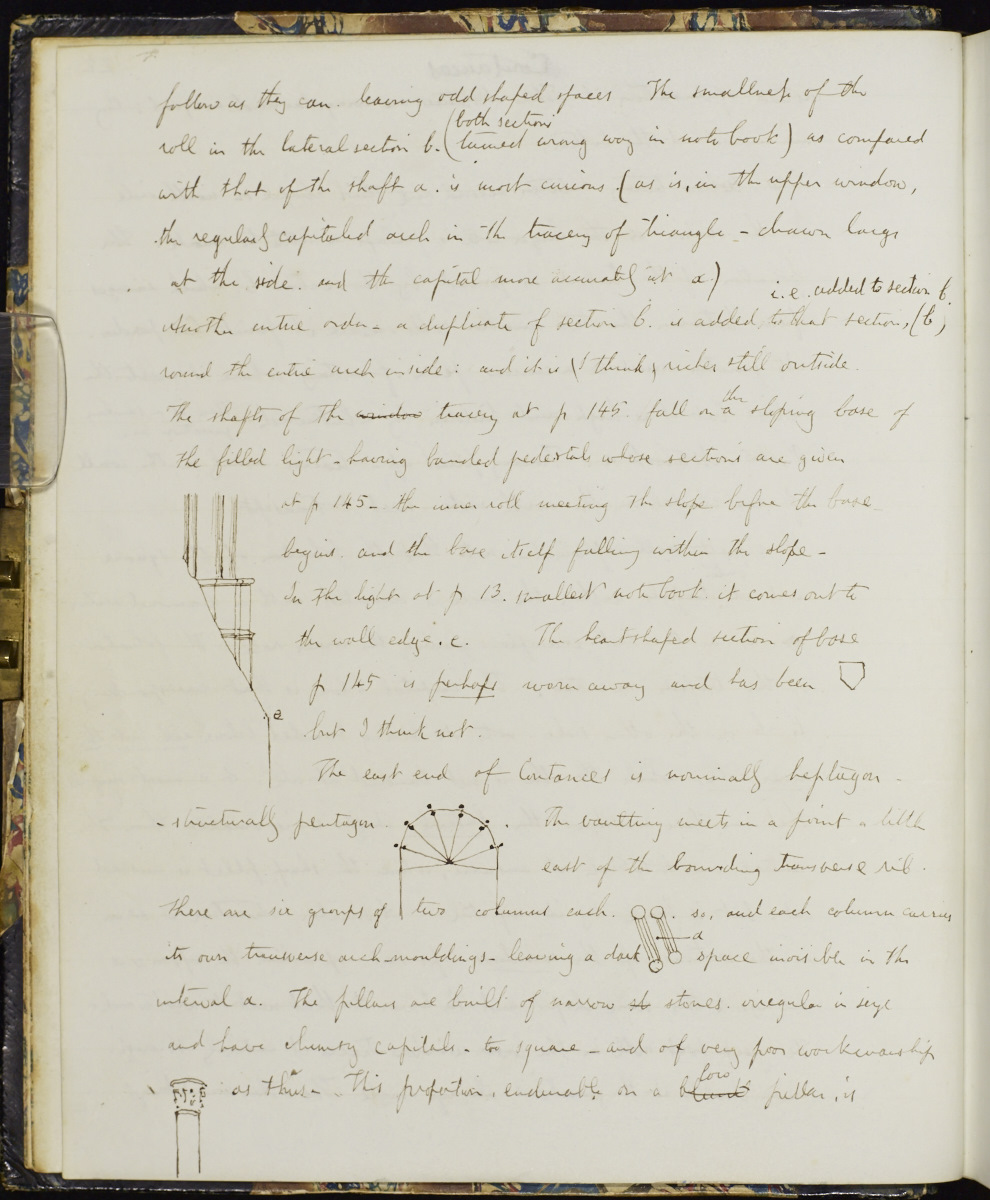 follow as they can. leaving odd shaped spaces The smallness of the
both sections
roll in the lateral section b. (turned wrong way in note book) as compared
with that of the shaft a. is most curious. (as is, in the upper window,
the regularly capitaled arch in the tracery of triangle - drawn large
at the side. and the capital more accurately at x.)
i.e. added to section b.
Another entire order - a duplicate of section b. is added, to that section, (b,)
round the entire arch inside: and it is (I think) richer still outside.
the
The shafts of the window tracery at p 145. fall on a sloping base of
the filled light - having banded pedestals whose sections are given
at p 145 - the inner roll meeting the slope before the base
begins. and the base itself falling within the slope -
In the light at p 13. smallest note book. it comes out to
the wall edge. c. The heartshaped section of base
p 145 is perhaps worn away and has been
but I think not.
a
The east end of Coutances is nominally heptagon -
- structurally pentagon. The vaulting meets in a point a little
east of the bounding transverse rib.
There are six groups of two columns each. so, and each column carries
a
its own transverse arch-mouldings - leaving a dark space invisible in the
interval a. The pillars are built of narrow st stones. irregular in size
and have clumsy capitals - too square - and of very poor workmanship
low
as thus - This proportion, endurable on a pillar, is